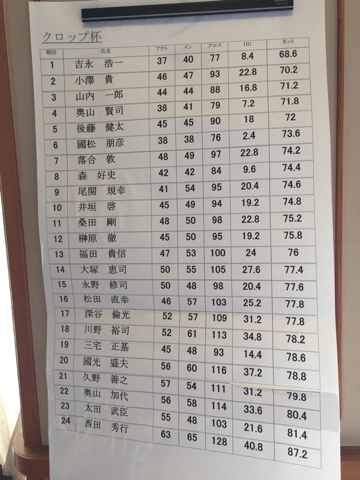 クロップ杯
順位 氏名 アウト イン グロス HD ネット
1 吉永 浩一 37 40 77 8.4 68.6
2 小澤 貴 46 47 93 22.8 70.2
3 山内 一郎 44 44 88 16.8 71.2
4 奥山 賢司 38 41 79 7.2 71.8
5 後藤 健太 45 45 90 18 72
6 國松 朋彦 38 38 76 2.4 73.6
7 落合 敦 48 49 97 22.8 74.2
8 森 好史 42 42 84 9.6 74.4
9 尾関 規幸 41 54 95 20.4 74.6
10 井垣 啓 45 49 94 19.2 74.8
11 桑田 剛 48 50 98 22.8 75.2
12 榊原 徹 45 50 95 19.2 75.8
13 福田 貴信 47 53 100 24 76
14 大塚 恵司 50 55 105 27.6 77.4
15 永野 修司 50 48 98 20.4 77.6
16 松田 直幸 46 57 103 25.2 77.8
17 深谷 倫光 52 57 109 31.2 77.8
18 川野 裕司 52 61 113 34.8 78.2
19 三宅 正基 45 48 93 14.4 78.6
20 國光 盛夫 56 60 116 37.2 78.8
21 久野 善之 57 54 111 31.2 79.8
22 奥山 加代 56 58 114 33.6 80.4
23 太田 武臣 55 48 103 21.6 81.4
24 西田 秀行 63 65 128 40.8 87.2